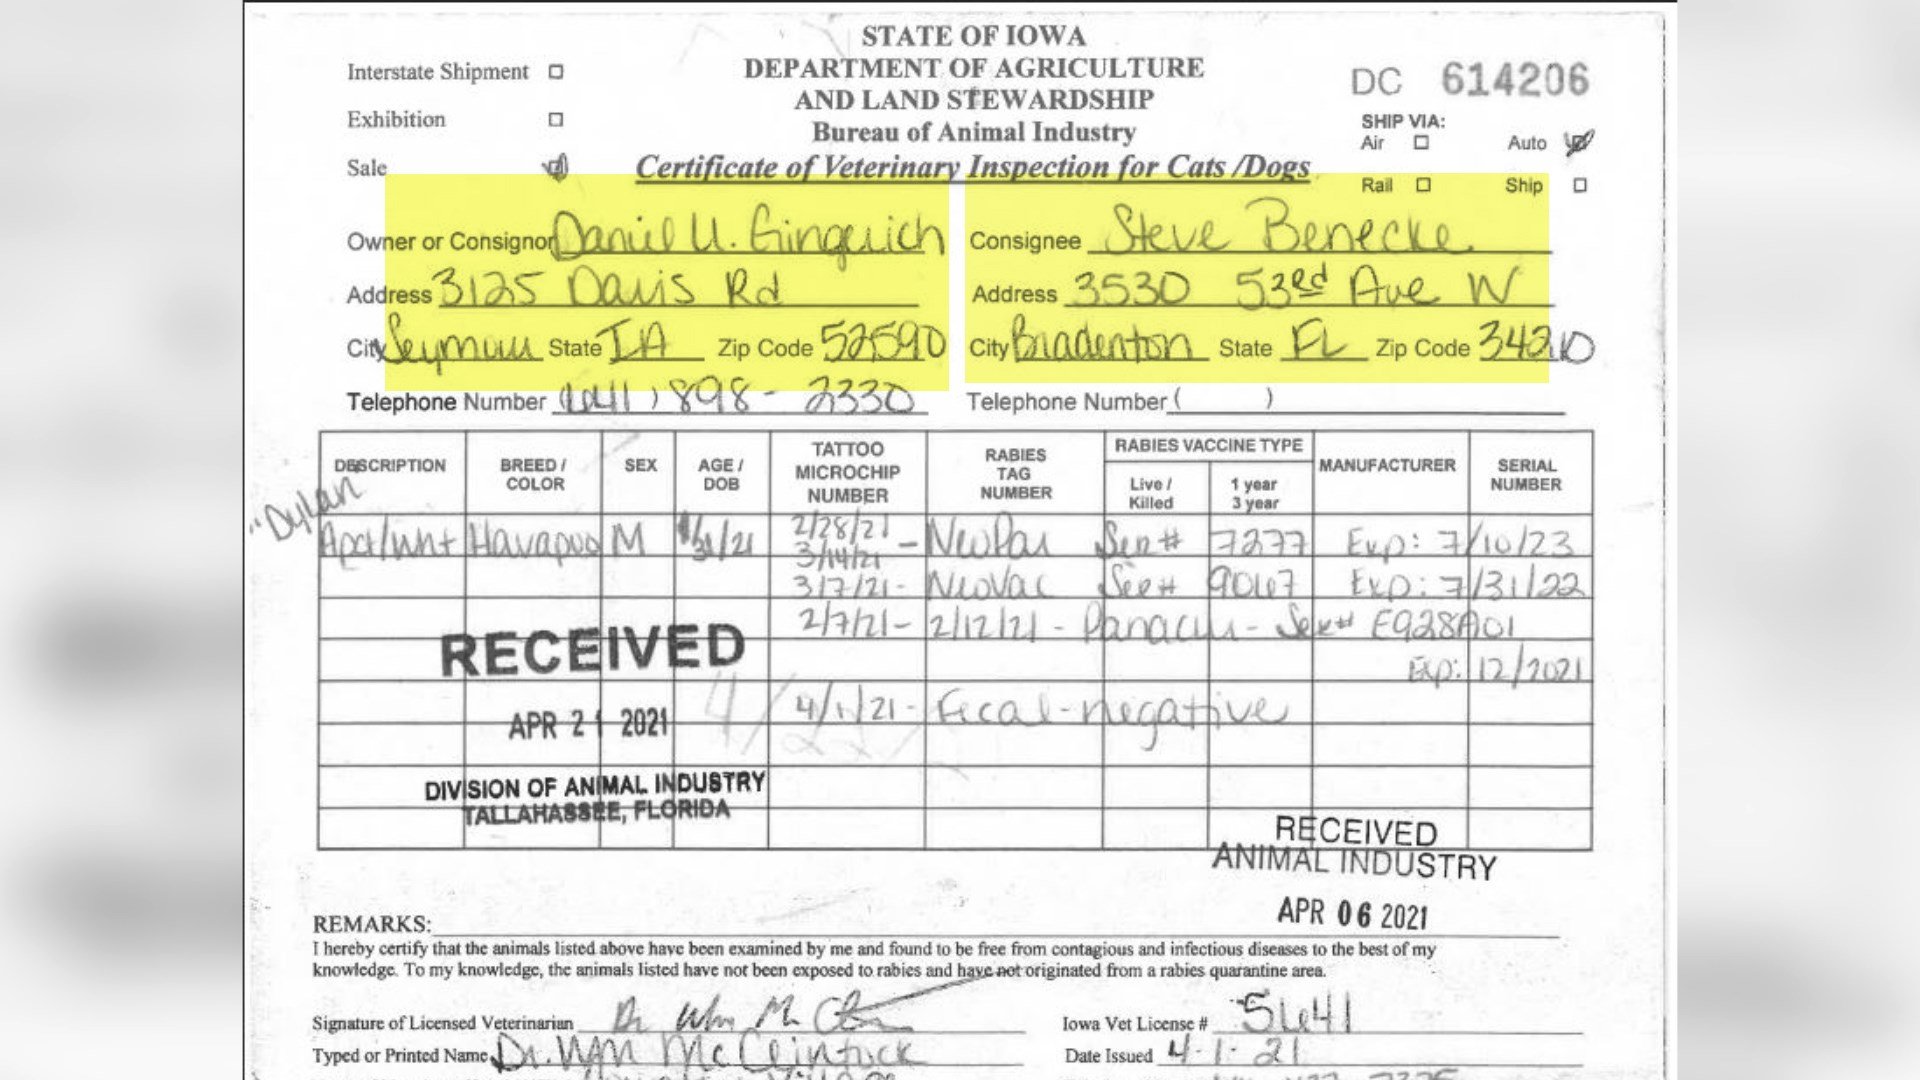 STATE OF IOWA
DEPARTMENT OF AGRICULTURE
AND LAND STEWARDSHIP
Bureau of Animal Industry
Certificate of Veterinary Inspection for Cats /Dogs
Interstate Shipment
Exhibition
Sale
DC 614206
SHIP VIA:
Air Auto
Rail Ship
Owner or Consignor Daniel U. Gingerich
Address 3125 Davis Rd
City Seymour State IA Zip Code 52590
Telephone Number (641) 898-2330
Consignee Steve Benecke.
Address 3530 53rd Ave W
City Bradenton State FL Zip Code 34210
Telephone Number ( )
DESCRIPTION BREED / COLOR SEX AGE / DOB TATTOO MICROCHIP NUMBER RABIES TAG NUMBER RABIES VACCINE TYPE Live / Killed 1 year 3 year MANUFACTURER SERIAL NUMBER
"Dylan
Apct/Wht Havapoo M 1/31/21 2/28/21 3/14/21 - NeoPar Ser# 7277 Exp: 7/10/23
3/7/21- NeoVac Ser# 9067 Exp: 7/31/22
2/7/21- 2/12/21 - Panacur - Ser# E928A01
Exp: 12/2021
4/1/21- Fecal-negative
RECEIVED
APR 21 2021
DIVISION OF ANIMAL INDUSTRY
TALLAHASSEE, FLORIDA
RECEIVED
ANIMAL INDUSTRY
APR 06 2021
REMARKS:
I hereby certify that the animals listed above have been examined by me and found to be free from contagious and infectious diseases to the best of my
knowledge. To my knowledge, the animals listed have not been exposed to rabies and have not originated from a rabies quarantine area.
Signature of Licensed Veterinarian Dr Wm Mc
Iowa Vet License # 5641
Typed or Printed Name Dr. Wm McClintock
Date Issued 4-1-21